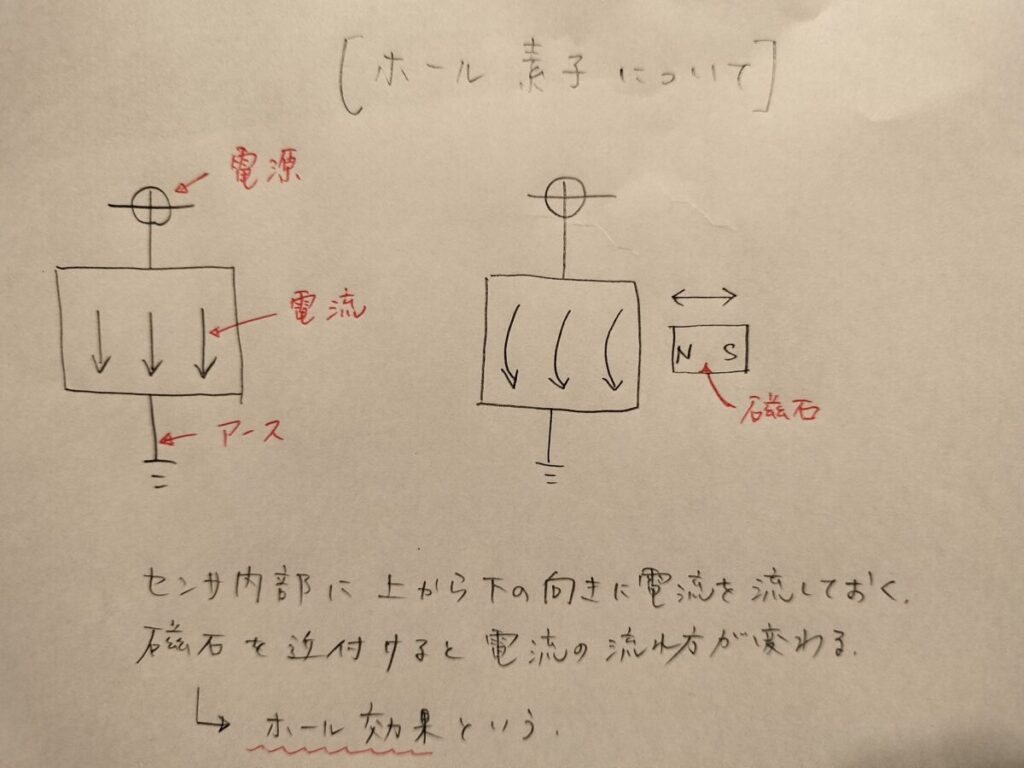 [ホール素子について]
電源
電流
アース
N S
磁石
センサ内部に上から下の向きに電流を流しておく.
磁石を近付けると電流の流れ方が変わる.
ホール効果という.